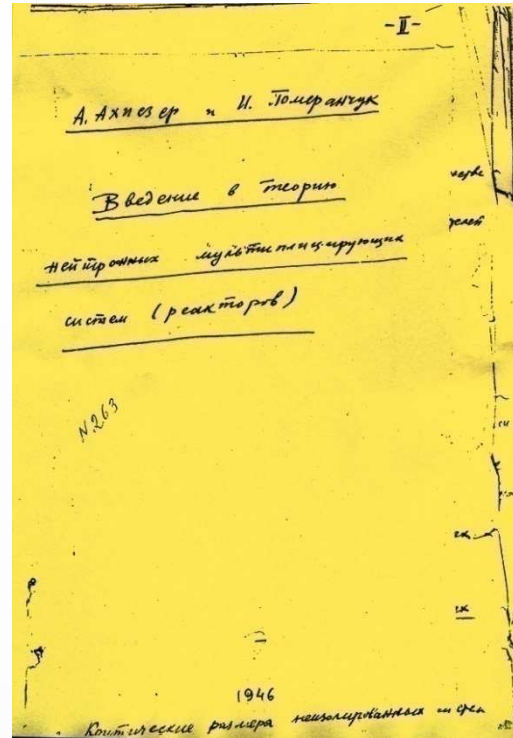 -II-
А. Ахиезер и И. Померанчук
Введение в теорию
нейтронных мультиплицирующих
систем (реакторов)
N.263
1946
Критические размера неизолированных систем